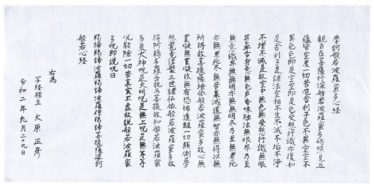 摩訶般若波羅蜜多心経
観自在菩薩行深般若波羅蜜多時照見五
蘊皆空度一切苦厄舎利子色不異空空不
異色色即是空空即是色受想行識亦復如
是舎利子是諸法空相不生不滅不垢不浄
不増不減是故空中無色無受想行識無眼
耳鼻舌身意無色声香味触法無眼界乃至
無意識界無無明亦無無明尽乃至無老死
亦無老死尽無苦集滅道無智亦無得以無
所得故菩提薩埵依般若波羅蜜多故心無
罣礙無罣礙故無有恐怖遠離一切顛倒夢
想究竟涅槃三世諸仏依般若波羅蜜多故
得阿耨多羅三藐三菩提故知般若波羅蜜
多是大神呪是大明呪是無上呪是無等等
呪能除一切苦真実不虚故説般若波羅蜜
多呪即説呪曰
羯諦羯諦波羅羯諦波羅僧羯諦菩提薩婆訶
般若心経
右為
写経願主 大原 正彦
令和二年九月二十九日